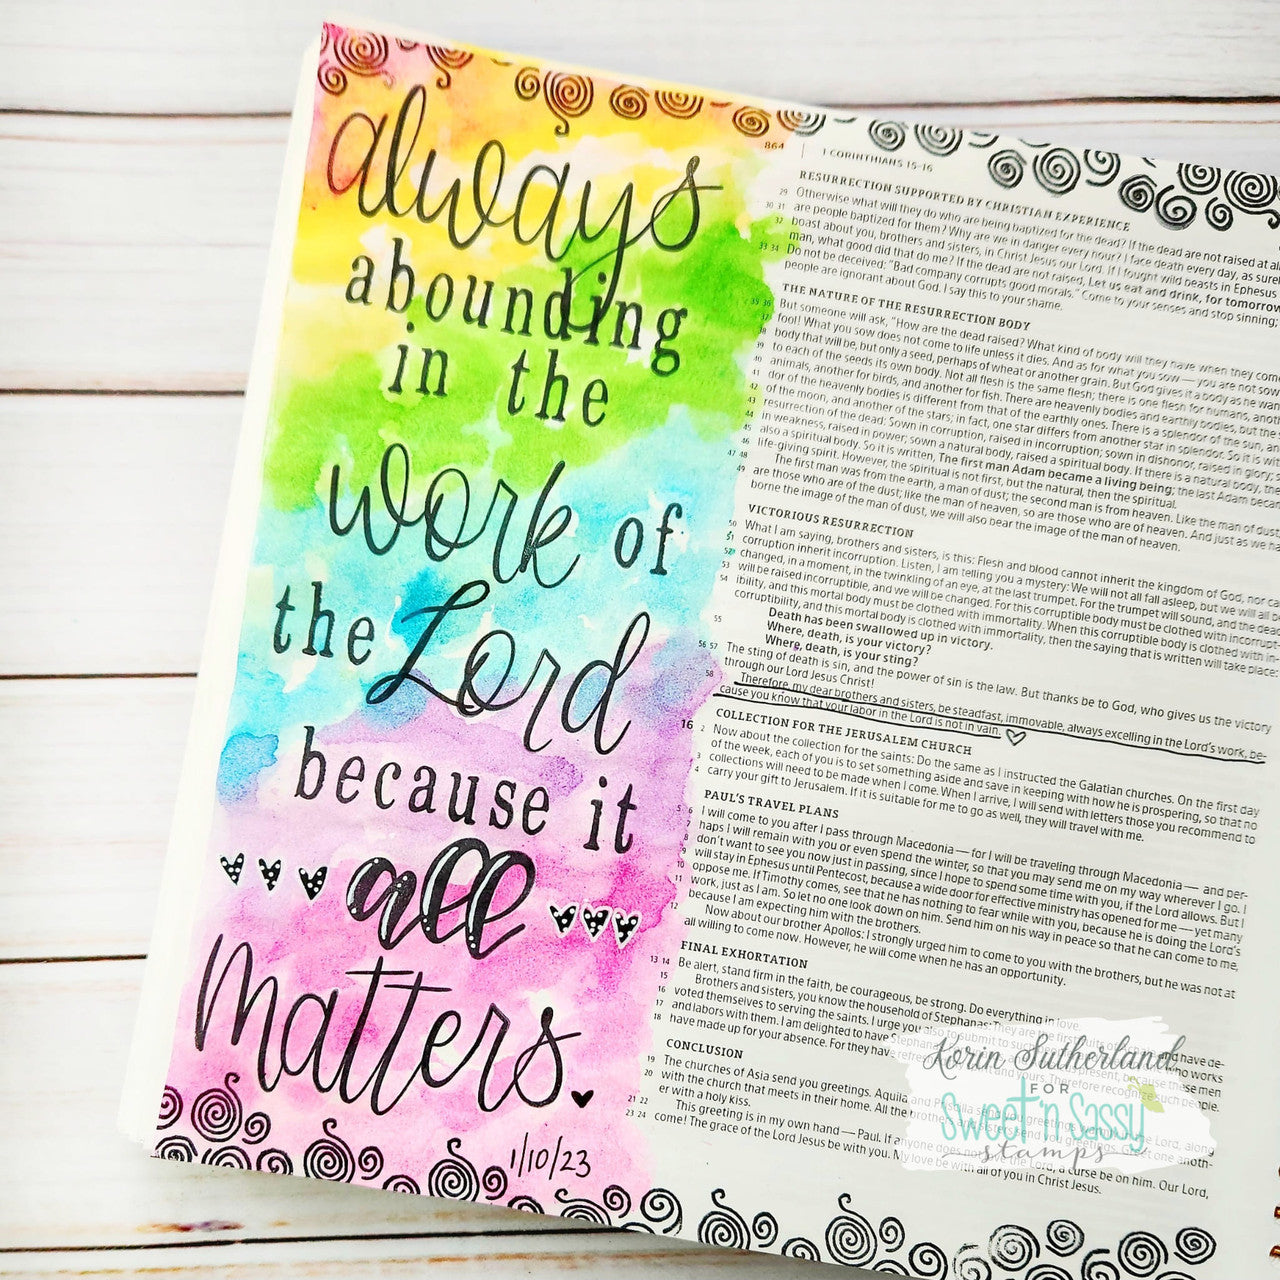 always
abounding
in the
work of
the Lord
because it
all
matters.
1/10/23
864
1 CORINTHIANS 15–16
RESURRECTION SUPPORTED BY CHRISTIAN EXPERIENCE
29 Otherwise what will they do who are being baptized for the dead? If the dead are not raised at all
30 31 are people baptized for them? Why are we in danger every hour? I face death every day, as surel
32 boast about you, brothers and sisters, in Christ Jesus our Lord. If I fought wild beasts in Ephesus
man, what good did that do me? If the dead are not raised, Let us eat and drink, for tomorrow
33 34 Do not be deceived: “Bad company corrupts good morals.” Come to your senses and stop sinning
people are ignorant about God. I say this to your shame.
THE NATURE OF THE RESURRECTION BODY
35 36 But someone will ask, “How are the dead raised? What kind of body will they have when they come
37 fool! What you sow does not come to life unless it dies. And as for what you sow — you are not sow
38 body that will be, but only a seed, perhaps of wheat or another grain. But God gives it a body as he wan
39 to each of the seeds its own body. Not all flesh is the same flesh; there is one flesh for humans, anoth
40 animals, another for birds, and another for fish. There are heavenly bodies and earthly bodies, but the
41 dor of the heavenly bodies is different from that of the earthly ones. There is a splendor of the sun, an
42 of the moon, and another of the stars; in fact, one star differs from another star in splendor. So it is wit
43 resurrection of the dead: Sown in corruption, raised in incorruption; sown in dishonor, raised in glory; s
44 in weakness, raised in power; sown a natural body, raised a spiritual body. If there is a natural body, the
45 also a spiritual body. So it is written, The first man Adam became a living being; the last Adam beca
46 life-giving spirit. However, the spiritual is not first, but the natural, then the spiritual.
47 48 The first man was from the earth, a man of dust; the second man is from heaven. Like the man of dust,
49 are those who are of the dust; like the man of heaven, so are those who are of heaven. And just as we ha
borne the image of the man of dust, we will also bear the image of the man of heaven.
VICTORIOUS RESURRECTION
50 What I am saying, brothers and sisters, is this: Flesh and blood cannot inherit the kingdom of God, nor ca
51 corruption inherit incorruption. Listen, I am telling you a mystery: We will not all fall asleep, but we will all b
52 changed, in a moment, in the twinkling of an eye, at the last trumpet. For the trumpet will sound, and the dea
53 will be raised incorruptible, and we will be changed. For this corruptible body must be clothed with incorrupt-
54 ibility, and this mortal body must be clothed with immortality. When this corruptible body is clothed with in-
corruptibility, and this mortal body is clothed with immortality, then the saying that is written will take place:
55 Death has been swallowed up in victory.
Where, death, is your victory?
Where, death, is your sting?
56 57 The sting of death is sin, and the power of sin is the law. But thanks be to God, who gives us the victory
through our Lord Jesus Christ!
58 Therefore, my dear brothers and sisters, be steadfast, immovable, always excelling in the Lord’s work, be-
cause you know that your labor in the Lord is not in vain.
COLLECTION FOR THE JERUSALEM CHURCH
16 2 Now about the collection for the saints: Do the same as I instructed the Galatian churches. On the first day
of the week, each of you is to set something aside and save in keeping with how he is prospering, so that no
3 collections will need to be made when I come. When I arrive, I will send with letters those you recommend to
4 carry your gift to Jerusalem. If it is suitable for me to go as well, they will travel with me.
PAUL’S TRAVEL PLANS
5 6 I will come to you after I pass through Macedonia — for I will be traveling through Macedonia — and per-
7 haps I will remain with you or even spend the winter, so that you may send me on my way wherever I go. I
8 don’t want to see you now just in passing, since I hope to spend some time with you, if the Lord allows. But I
9 will stay in Ephesus until Pentecost, because a wide door for effective ministry has opened for me — yet many
10 oppose me. If Timothy comes, see that he has nothing to fear while with you, because he is doing the Lord’s
11 work, just as I am. So let no one look down on him. Send him on his way in peace so that he can come to me,
because I am expecting him with the brothers.
12 Now about our brother Apollos: I strongly urged him to come to you with the brothers, but he was not at
all willing to come now. However, he will come when he has an opportunity.
FINAL EXHORTATION
13 14 Be alert, stand firm in the faith, be courageous, be strong. Do everything in love.
15 Brothers and sisters, you know the household of Stephanas: They are the first
16 voted themselves to serving the saints. I urge you also to submit to such and have de-
17 and labors with them. I am delighted to have Stephanas present, because these men
18 have made up for your absence. For they have refreshed and yours. Therefore recognize such people.
CONCLUSION
19 The churches of Asia send you greetings. Aquila and Priscilla send you greetings the Lord, along
20 with the church that meets in their home. All the brothers and sisters send you greetings. Greet one anoth-
er with a holy kiss.
21 22 This greeting is in my own hand — Paul. If anyone does not love the Lord, a curse be on him. Our Lord,
23 24 come! The grace of the Lord Jesus be with you. My love be with all of you in Christ Jesus.
Korin Sutherland
FOR
Sweet 'n Sassy
stamps